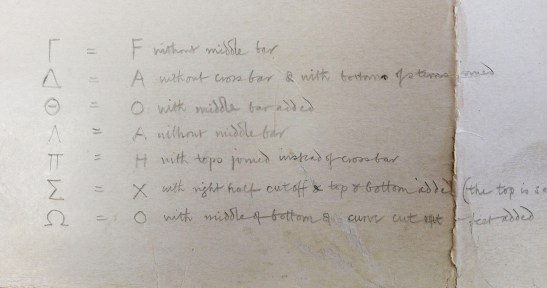 Γ = F without middle bar
Δ = A without cross bar & with bottom of stems joined
Θ = O with middle bar added
Λ = A without middle bar
Π = H with tops joined instead of crossbar
Σ = X with right half cut off & top & bottom added (the top is
Ω = O with middle of bottom of curve cut out feet added